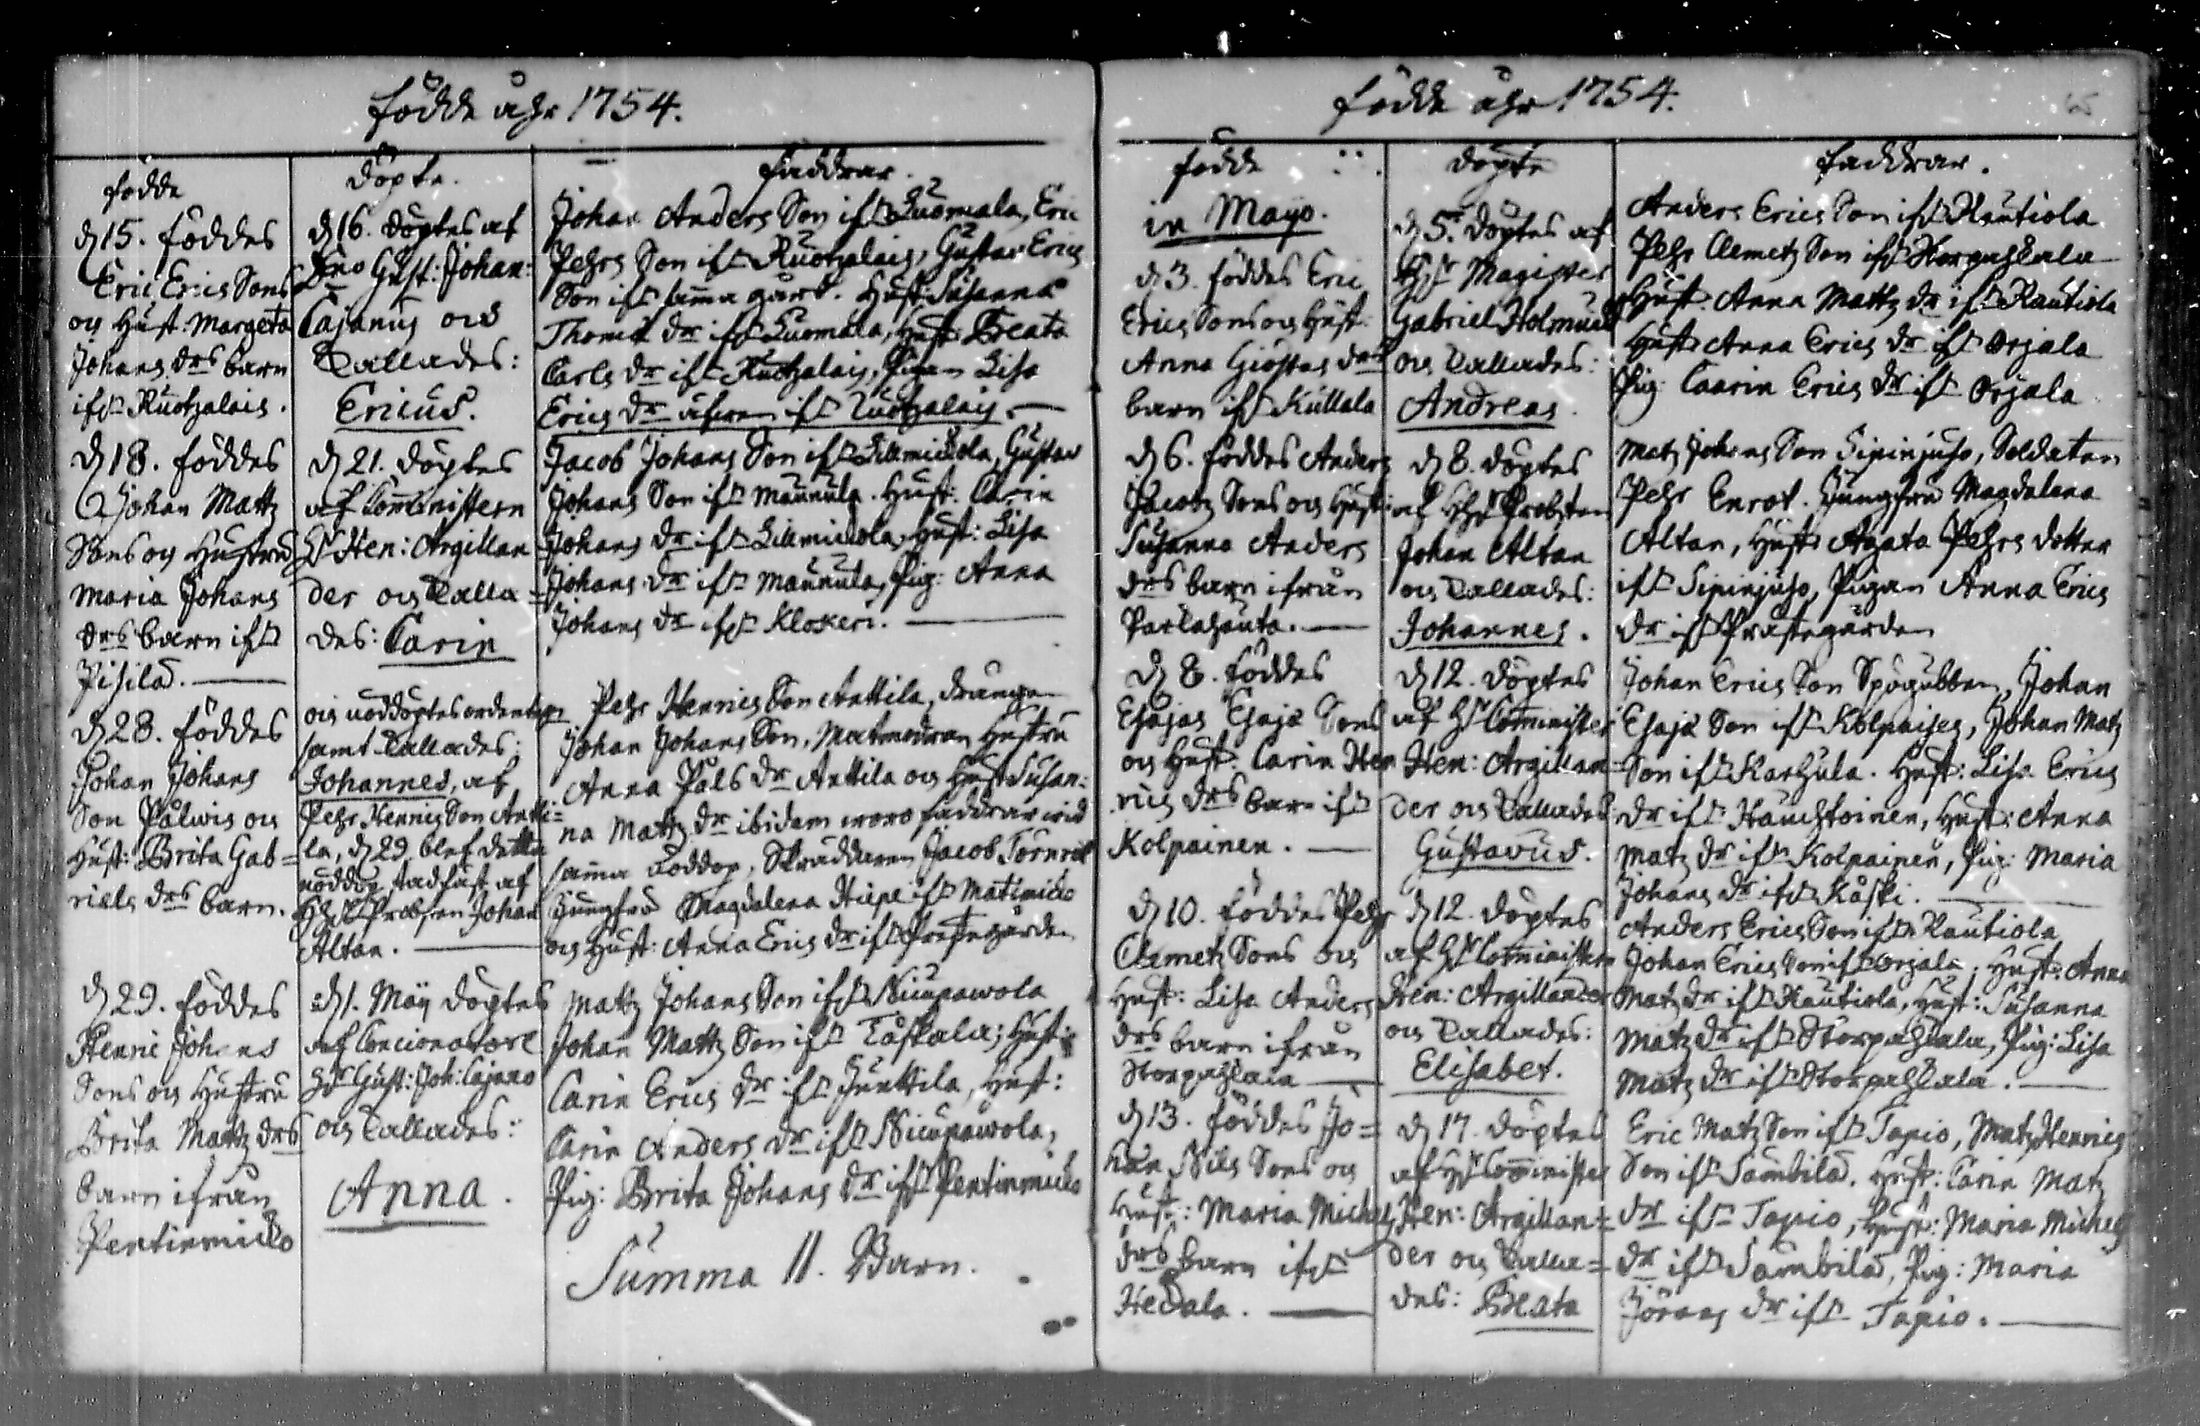 födde åhr 1754.
födde
d 15. föddes
Eric Erics Sons
och Hust. Margeta
Johans drs barn
ifr Ruotzalais.
d 18. föddes
Johan Mattz
Sons och Hustru
Maria Johans
drs barn ifr
Pisilä.
d 28. föddes
Johan Johans
Son Pålwis och
Hust: Brita Gab=
riels drs barn.
d 29. föddes
Henric Johans
Sons och Hustru
Brita Mattz drs
barn ifrån
Pentinmicko
döpte.
d 16. döptes af
Dno Gust: Johan:
Cajanus och
Kallades:
Ericus.
d 21. döptes
af Comministern
Hr Hen: Argillan
der och Kalla=
des: Carin
och nöddöptes
samt Kallades:
Johannes, af
Pehr Henrics Son Antti=
la, d 29 blef detta
nöddop stadfäst af
Probsten Johan
Altan.
d 1. Maij döptes
af Concionatore
Hr Gust: Joh: Cajano
och Kallades:
Anna.
faddrar.
Johan Anders Son ifr Luomala, Eric
Pehrs Son ifr Ruotzalais, Gustav Erics
Son ifr samma gård. Hust: Susanna
Thomæ dr ifr Luomala, Hust: Beata
Carls dr ifr Ruotzalais, Pigan Lisa
Erics dr äfwen ifr Ruotzalais.
Jacob Johans Son ifr Lillmickola, Gustav
Johans Son ifr Maunula. Hust: Carin
Johans dr ifr Lillmickola, Hust: Lisa
Johans dr ifr Maunula, Pig: Anna
Johans dr ifr Klokeri.
Pehr Henrics Son Anttila, drängen
Johan Johans Son, Matmodren Hustru
Anna Påls dr Anttila och Hust Susan:
na Mattz dr ibidem woro faddrar wid
samma nöddop, Skräddaren Jacob Törnrot
Jungfru Magdalena ifr
och Hust: Anna Erics dr ifr Prestegården
Mattz Johans Son ifr Niuupawola
Johan Mattz Son ifr Låskala; Hust:
Carin Erics dr ifr Junttila, Hust:
Carin Anders dr ifr Niuupawola,
Pig: Brita Johans dr ifr Pentinmicko
Summa 11. Barn.
födde åhr 1754.
födde
in Mayo.
d 3. föddes Eric
Erics Sons och Hust:
Anna Giöstas drs
barn ifr Kullala
d 6. föddes Anders
Jacobs Sons och Hust:
Susanna Anders
drs barn ifrån
Parkahauta.
d 8. föddes
Esajas Esajæ Sons
och Hust: Carin Hen
rics drs barn ifr
Kolpainen.
d 10. föddes Pehr
Clemetz Sons och
Hust: Lisa Anders
drs barn ifrån
Storpahlala
d 13. föddes Jo=
han Nils Sons och
Hust: Maria Michels
drs barn ifr
Hedala.
döpte
d 5. döptes af
Magister
Gabriel Holmudd
och Kallades:
Andreas.
d 8. döptes
af Probsten
Johan Altan
och Kallades:
Johannes.
d 12. döptes
af Hr Comminister
Hen: Argillan=
der och Kallades
Gustavus.
d 12. döptes
af Hr Comministern
Hen: Argillander
och Kallades:
Elisabet.
d 17. döptes
af Hr Comminister
Hen: Argillan=
der och Kalla=
des: Beata
faddrar.
Anders Erics Son ifr Rautiola
Pehr Clemetz Son ifr Storpahlala
Hust: Anna Mattz dr ifr Rautiola
Hust: Anna Erics dr ifr Orjala
Pig: Caarin Erics dr ifr Orjala
Matz Johans Son Sipinjuso, Soldaten
Pehr Enrot. Jungfru Magdalena
Altan, Hust: Agata Pehrs dotter
ifr Sipinjuso, Pigan Anna Erics
dr ifr Prästegården
Johan Erics Son Spögubben, Johan
Esajæ Son ifr Kolpainen, Johan Matz
Son ifr Karhula. Hust: Lisa Erics
dr ifr Hauhtoinen, Hust: Anna
Matz dr ifr Kolpainen, Pig: Maria
Johans dr ifr Kåski.
Anders Erics Son ifr Rautiola
Johan Erics Son ifr Orjala, Hust: Anna
Matz dr ifr Rautiola, Hust: Susanna
Matz dr ifr Storpahlala, Pig: Lisa
Matz dr ifr Storpahlala.
Eric Matz Son ifr Tapio, Matz Henrics
Son ifr Sambila. Hust: Carin Matz
dr ifr Tapio, Hust: Maria Michels
dr ifr Sambila, Pig: Maria
Jörans dr ifr Tapio.